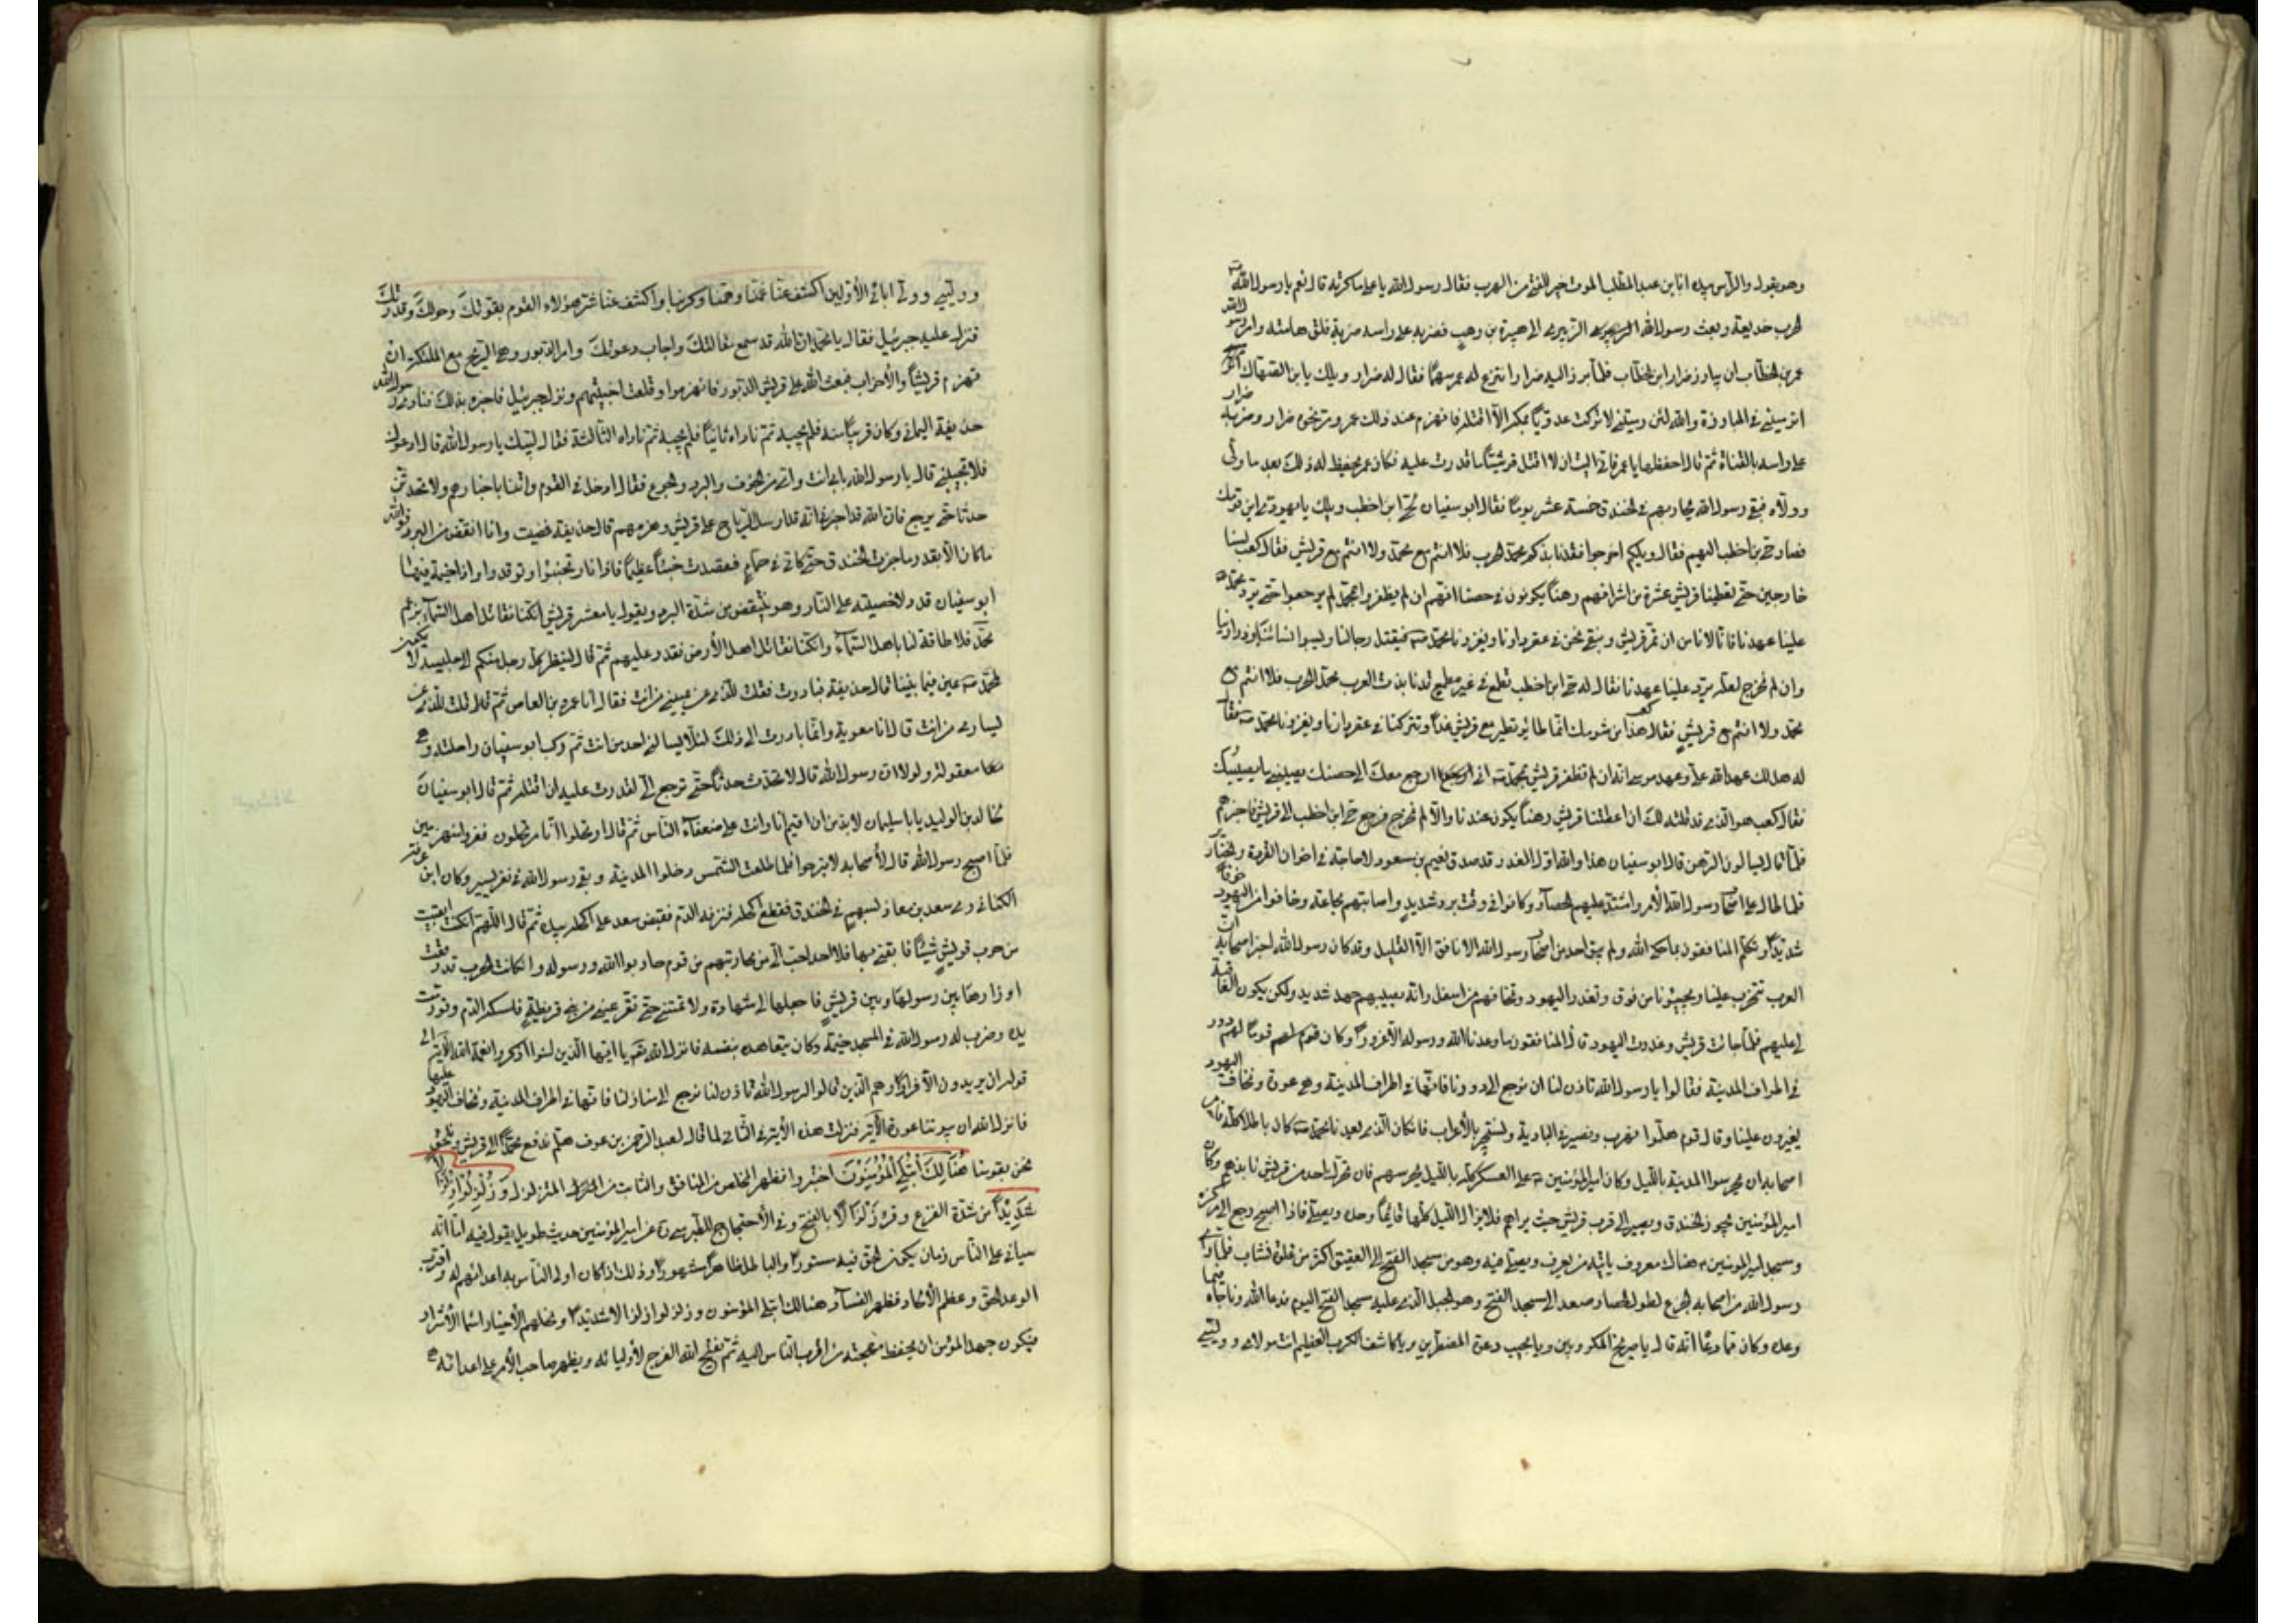 وهو يقول والرأس بيده انا ابن عبد المطلب الموت خير للفتى من الهرب فقال رسول الله يا على ماكرته قال نعم يا رسول الله
الحرب خديعة وبعث رسول الله الزبير الى هبيرة بن وهب فضربه على راسه ضربة فلق هامته وامر رسول الله
عمر بن الخطاب ان يبارز ضرار ابن الخطاب فلما برز اليه ضرار انتزع له عمر سهما فقال له ضرار ويلك يا بن الضهاك
اترميني في المبارزة والله لئن رميتني لا تركت عدويا بمكة الا قتلته فانهزم عند ذلك عمر ومر نحوه ضرار وضربه ضرار
على راسه بالقناة ثم قال احفظها يا عمر فانى اليت ان لا اقتل قرشيا ما قدرت عليه فكان عمر يحفظ له ذلك بعد ما ولى
وولاه فبقى رسول الله يحاربهم في الخندق خمسة عشر يوما فقال ابو سفيان لحى ابن اخطب ويلك يا يهودى اين قومك
فصار حى بن اخطب اليهم فقال ويلكم اخرجوا فقد نابذكم محمد الحرب فلا انتم مع محمد ولا انتم مع قريش فقال كعب لسنا
خارجين حتى تعطينا قريش عشرة من اشرافهم رهنا يكونون في حصننا انهم ان لم يظفروا بمحمد لم يرجعوا حتى يرد محمد
علينا عهدنا فانا لا نامن ان تمر قريش ونبقى نحن في عقر دارنا ويغزونا محمد فيقتل رجالنا ويسبى نسائنا وذرارينا
وان لم نخرج لعله يرد علينا عهدنا فقال له حى ابن اخطب تطمع في غير مطمع قد نابذت العرب محمد الحرب فلا انتم مع
محمد ولا انتم مع قريش فقال كعب هذا من شومك انما طائر تطير مع قريش غدا وتتركنا في عقر دارنا ويغزينا محمد فقال
له هل لك عهد الله على وعهد موسى انه ان لم تظفر قريش بمحمد انى ارجع معك الى حصنك يصيبنى ما يصيبك
فقال كعب هو الذى قد قلته لك ان اعطتنا قريش رهنا يكون عندنا والا لم نخرج فرجع حى ابن اخطب الى قريش فاخبرهم
فلما قال يسالون الرهن قال ابو سفيان هذا والله اول الغدر قد صدق نعيم بن مسعود لا حاجة في اخوان القردة والخنازير
فلما طال على اصحاب رسول الله الامر واشتد عليهم الحصار وكانوا في وقت برد شديد واصابتهم مجاعة وخافوا من اليهود خوفا
شديدا وتكلم المنافقون بما حكى الله ولم يبق احد من اصحاب رسول الله الا نافق الا القليل وقد كان رسول الله اخبر اصحابه ان
العرب تتحزب علينا ويجيئونا من فوق وتغدر اليهود ونخافهم من اسفل وانه يصيبهم جهد شديد ولكن يكون العاقبة
لى عليهم فلما جائت قريش وغدرت اليهود قال المنافقون ما وعدنا الله ورسوله الا غرورا وكان قوم لهم دور
في اطراف المدينة فقالوا يا رسول الله تاذن لنا ان نرجع الى دورنا فانها في اطراف المدينة وهى عورة ونخاف اليهود
يغيرون علينا وقال قوم هلموا فنهرب ونصير في البادية ونستجير بالأعراب فان كان الذى يعدنا محمد كان باطلا كله فامر
اصحابه ان يحرسوا المدينة بالليل وكان امير المؤمنين على العسكر كله بالليل يحرسهم فان تحرك احد من قريش نابذهم وكان
امير المؤمنين يجوز الخندق ويصير الى قرب قريش حيث يراهم فلا يزال الليل كلها قائما وحده ويصلى فاذا اصبح رجع الى مركزه
ومسجد امير المومنين هناك معروف ياتيه من يعرف ويصلى فيه وهو من مسجد الفتح الى العقيق اكثر من غلوة نشاب فلما راى
رسول الله من اصحابه الجزع لطول الحصار صعد الى مسجد الفتح وهو الجبل الذى عليه مسجد الفتح اليوم فدعا الله وناجاه فيما
وعده وكان مما دعا انه قال يا صريخ المكروبين ويا مجيب دعوة المضطرين ويا كاشف الكرب العظيم انت مولاى ووليى
ووليى وولى ابائى الأولين اكشف عنا غمنا وهمنا وكربنا واكشف عنا شر هؤلاء القوم بقوتك وحولك وقدرتك
فنزل عليه جبرئيل فقال يا محمد ان الله قد سمع مقالتك واجاب دعوتك وامر الدبور وهى الريح مع الملئكة ان
تهزم قريشا والأحزاب فبعث الله على قريش الدبور فانهزموا وقلعت اخبيتهم ونزل جبرئيل فاخبره بذلك فنادى رسول الله
حذيفة اليمانى وكان قريبا منه فلم يجبه ثم ناداه ثانيا فلم يجبه ثم ناداه الثالثة فقال لبيك يا رسول الله قال ادعوك
فلا تجيبنى قال يا رسول الله بابى انت وامى من الخوف والبرد والجوع فقال ادخل في القوم واتنا باخبارهم ولا تحدثن
حدثا حتى ترجع فان الله قد اخبرنى انه قد ارسل الرياح على قريش وهزمهم قال حذيفة فمضيت وانا انتفض من البرد فوالله
ماكان الا بقدر ما جزت الخندق حتى كانى في حمام فقصدت خباء عظيما فاذا نار تخبو وتوقد واذا خيمة فيها
ابو سفيان قد دلا خصيتيه على النار وهو ينتفض من شدة البرد ويقول يا معشر قريش ان كنا نقاتل اهل السمآء بزعم
محمد فلا طاقة لنا باهل السمآء وان كنا نقاتل اهل الأرض فنقدر عليهم ثم قال لينظر كل رجل منكم الى جليسه لا يكون
لمحمد عين فيما بيننا قال حذيفة فبادرت فقلت للذى عن يمينى من انت فقال انا عمرو بن العاص ثم قلت للذى عن
يسارى من انت قال انا معوية وانما بادرت الى ذلك لئلا يسالنى احد من انت ثم ركب ابو سفيان راحلته وهى
معقولة ولولا ان رسول الله قال لا تحدث حدثا حتى ترجع الى لقدرت عليه ان اقتله ثم قال ابو سفيان
لخالد بن الوليد يا با سليمان لا بد من ان اقيم انا وانت على ضعفاء الناس ثم قال ارتحلوا انا مرتحلون ففروا منهزمين
فلما اصبح رسول الله قال لأصحابه لا تبرحوا فلما طلعت الشمس دخلوا المدينة وبقى رسول الله في نفر يسير وكان ابن عرقة
الكنانى رمى سعد بن معاذ بسهم في الخندق فقطع اكحله فنزفه الدم فقبض سعد على اكحله بيده ثم قال اللهم ان كنت ابقيت
من حرب قريش شيئا فابقنى لها فلا احد احب الى من محاربتهم من قوم حاربوا الله ورسوله وان كانت الحرب قد وضعت
اوزارها بين رسول الله وبين قريش فاجعلها لى شهادة ولا تمتنى حتى تقر عينى من بنى قريظة فامسك الدم وتورمت
يده وضرب له رسول الله في المسجد خيمة وكان يتعاهده بنفسه فانزل الله يا ايها الذين امنوا اذكروا نعمة الله الآية الى
قوله ان يريدون الا فرارا وهم الذين قالوا لرسول الله تاذن لنا نرجع الى منازلنا فانها في اطراف المدينة ونخاف اليهود عليها
فانزل الله ان بيوتنا عورة الآية ونزلت هذه الآية في الثانى لما قال لعبد الرحمن بن عوف هلم ندفع محمدا الى قريش ونلحق
نحن بقومنا هُنَالِكَ ابْتُلِيَ الْمُؤْمِنُونَ اختبروا فظهر المخلص من المنافق والثابت من المتزلزل وَزُلْزِلُوا زِلْزَالًا
شَدِيدًا من شدة الفزع وقرئ زَلزالا بالفتح وفى الاحتجاج للطبرسى عن امير المؤمنين حديث طويل يقول فيه اما انه
سياتى على الناس زمان يكون الحق فيه مستورا والباطل ظاهرا مشهورا وذلك اذا كان اولى الناس به اعدائهم له واقترب
الوعد الحق وعظم الألحاد وظهر الفساد هنالك ابتلى المؤمنون وزلزلوا زلزالا شديدا ونحلهم الأخيار اسماء الأشرار
فيكون جهد المؤمن ان يحفظ مهجته من اقرب الناس اليه ثم يفتح الله الفرج لأوليائه ويظهر صاحب الأمر على اعدائه